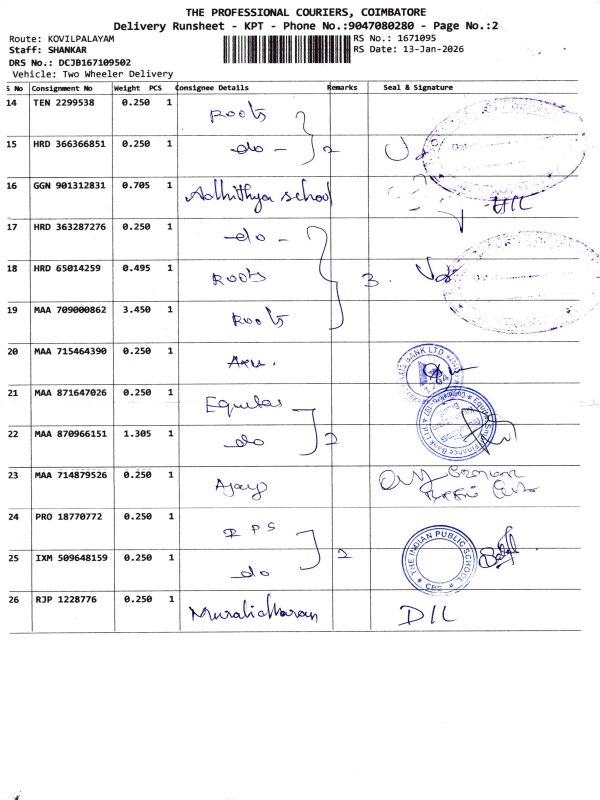 THE PROFESSIONAL COURIERS, COIMBATORE
Delivery Runsheet - KPT - Phone No.:9047080280 - Page No.:2
Route: KOVILPALAYAM
RS No.: 1671095
Staff: SHANKAR
RS Date: 13-Jan-2026
DRS No.: DCJB167109502
Vehicle: Two Wheeler Delivery
S No Consignment No Weight PCS Consignee Details Remarks Seal & Signature
14 TEN 2299538 0.250 1 Roots
15 HRD 366366851 0.250 1 -do- 2
16 GGN 901312831 0.705 1 Adhithya school
17 HRD 363287276 0.250 1 -do-
18 HRD 65014259 0.495 1 Roots 3
19 MAA 709000862 3.450 1 Roots
20 MAA 715464390 0.250 1 BANK LTD
21 MAA 871647026 0.250 1 Equitas
22 MAA 870966151 1.305 1 do 2 Finance Bank Ltd
23 MAA 714879526 0.250 1 Ajay
24 PRO 18770772 0.250 1 IPS
25 IXM 509648159 0.250 1 do 2 THE INDIAN PUBLIC SCHOOL
26 RJP 1228776 0.250 1 Muralidharan D/L